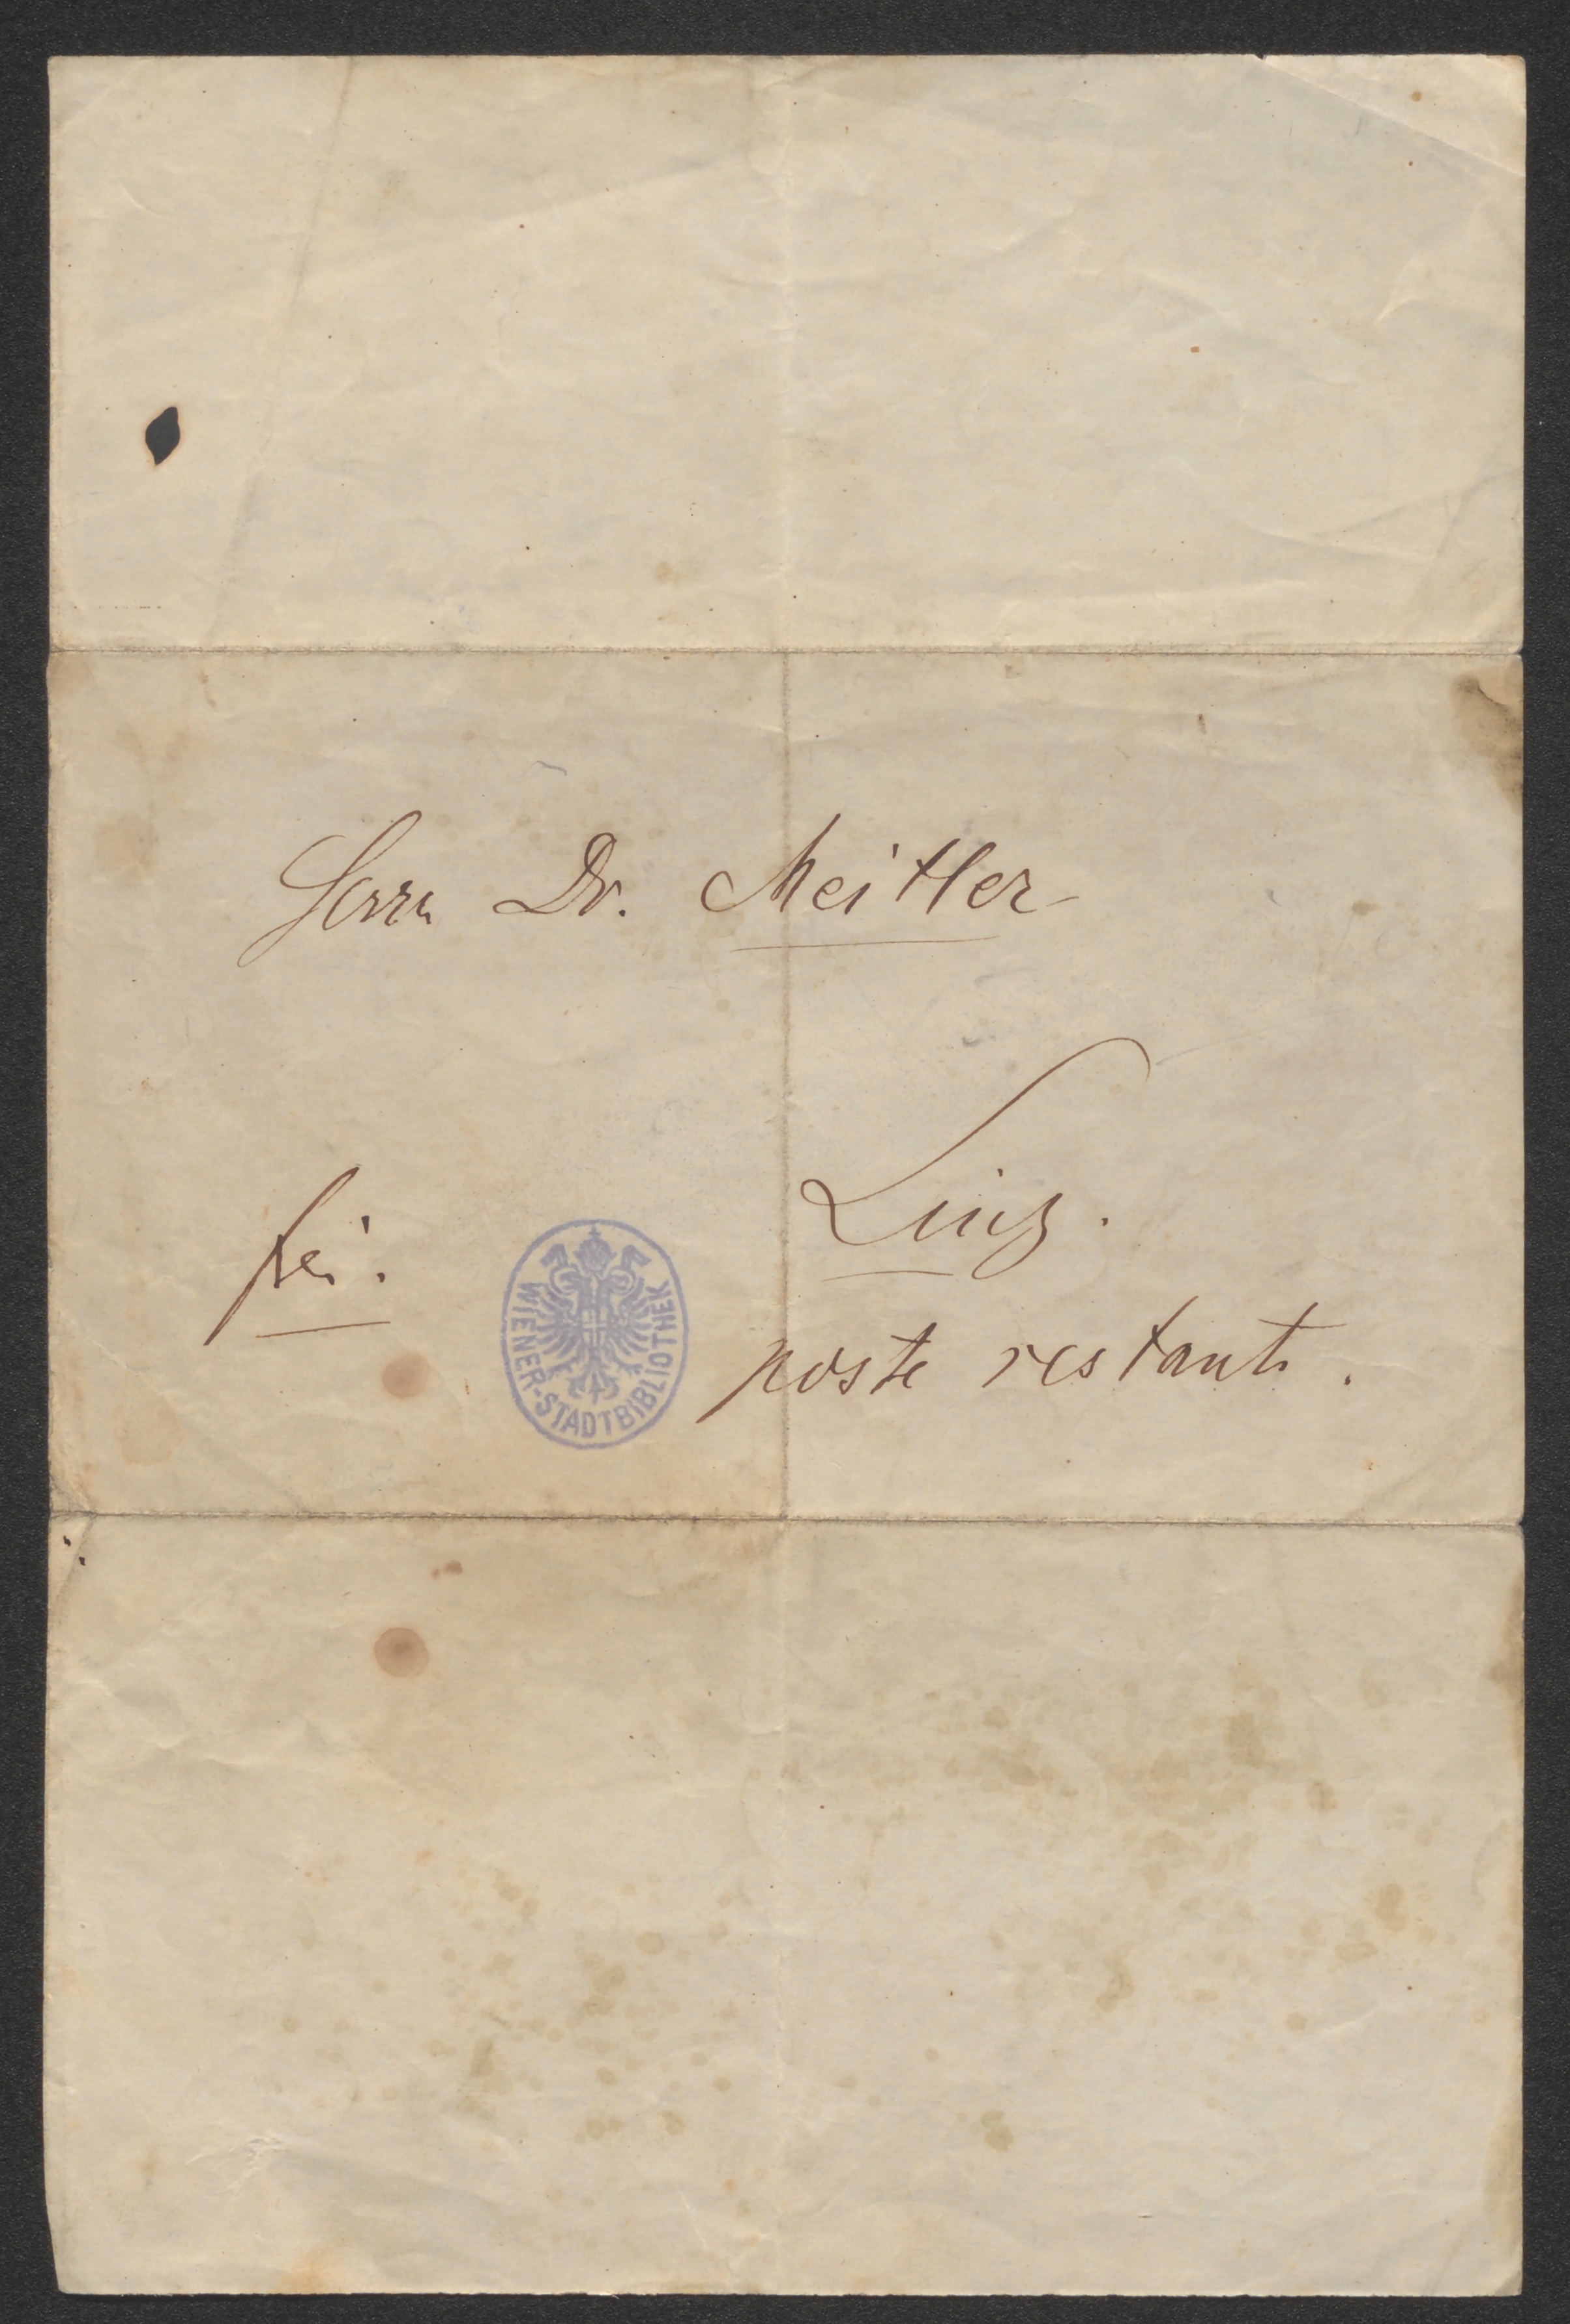 Herrn Dr. Meitler
Linz.
frei.
poste restante.
WIENER-STADTBIBLIOTHEK